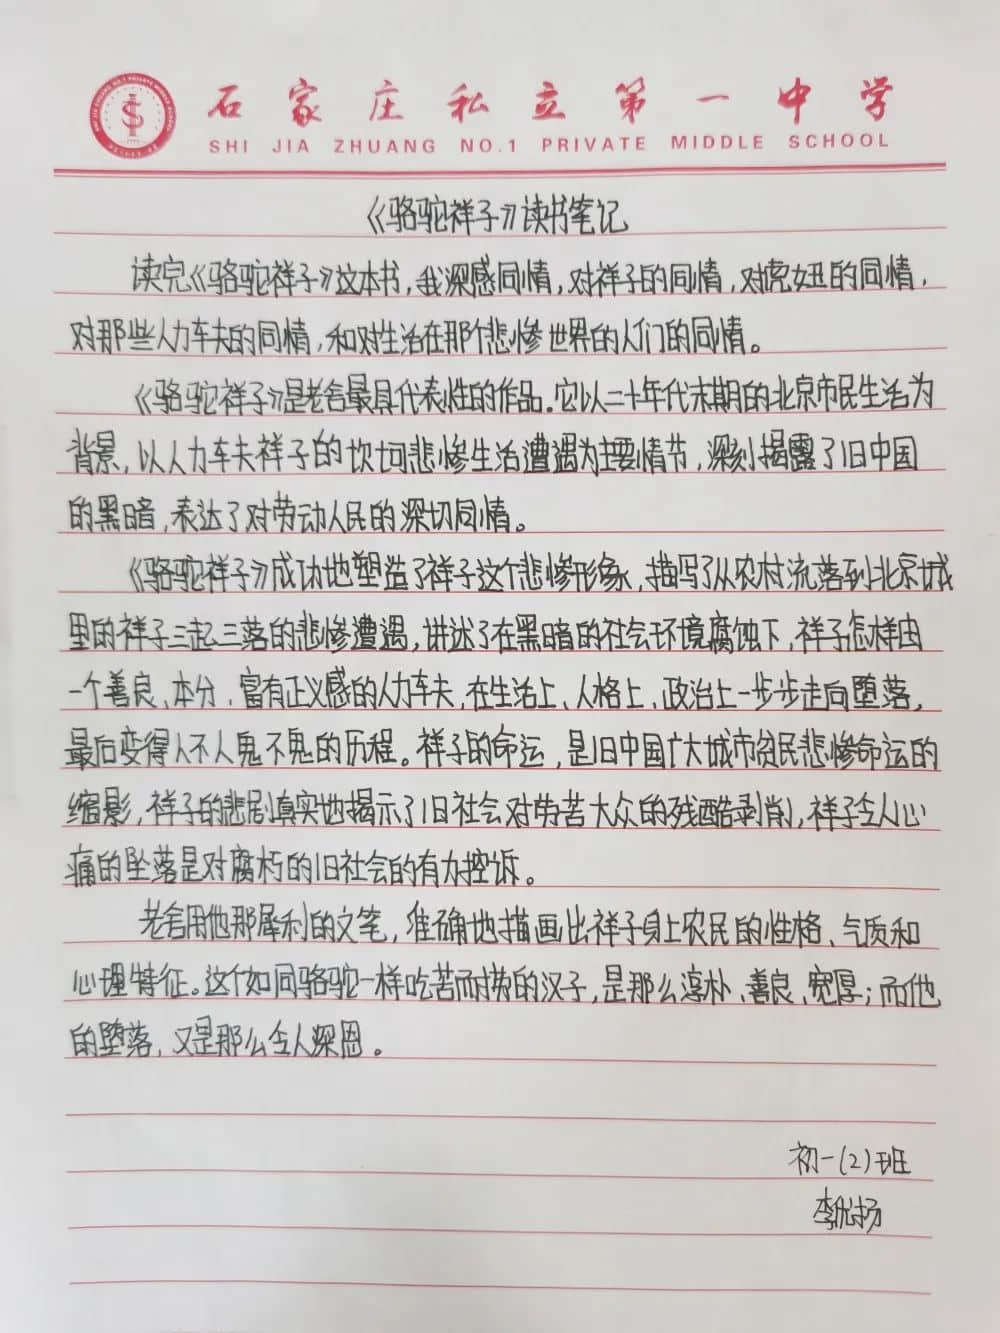 石家庄私立第一中学
SHI JIA ZHUANG NO.1 PRIVATE MIDDLE SCHOOL
《骆驼祥子》读书笔记
读完《骆驼祥子》这本书，我深感同情，对祥子的同情，对虎妞的同情，
对那些人力车夫的同情，和对生活在那个悲惨世界的人们的同情。
《骆驼祥子》是老舍最具代表性的作品。它以二十年代末期的北京市民生活为
背景，以人力车夫祥子的坎坷悲惨生活遭遇为主要情节，深刻揭露了旧中国
的黑暗，表达了对劳动人民的深切同情。
《骆驼祥子》成功地塑造了祥子这个悲惨形象，描写了从农村流落到北京城
里的祥子三起三落的悲惨遭遇，讲述了在黑暗的社会环境腐蚀下，祥子怎样由
一个善良、本分、富有正义感的人力车夫，在生活上、人格上、政治上一步步走向堕落，
最后变得人不人鬼不鬼的历程。祥子的命运，是旧中国广大城市贫民悲惨命运的
缩影，祥子的悲剧真实地揭示了旧社会对劳苦大众的残酷剥削，祥子令人心
痛的坠落是对腐朽的旧社会的有力控诉。
老舍用他那犀利的文笔，准确地描画出祥子身上农民的性格、气质和
心理特征。这个如同骆驼一样吃苦而耐劳的汉子，是那么淳朴、善良、宽厚；而他
的堕落，又是那么令人深思。
初一(2)班